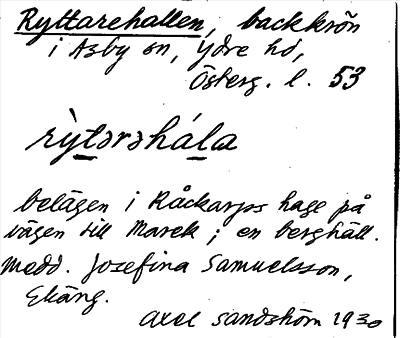 Ryttarehallen, backkrön
i Asby sn, Ydre hd,
Österg. l. 53
rỳtərəhála
belägen i Råckarps hage på
vägen till Marek; en berghäll.
Medd. Josefina Samuelsson,
Ekäng.
Axel Sandström 1930